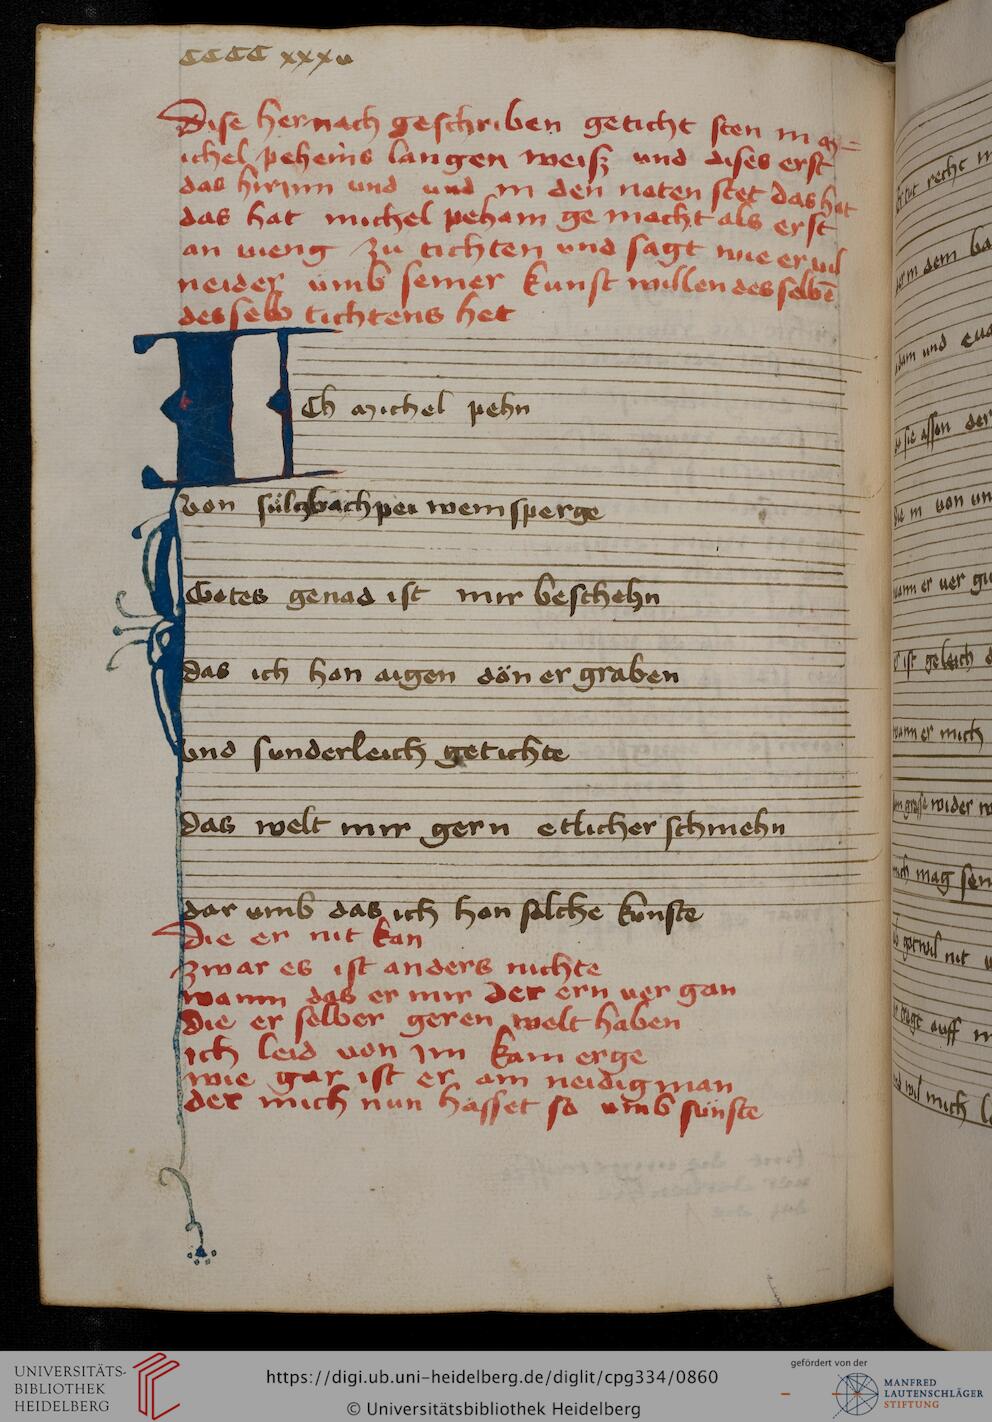 CCCC xxxv
Dise hernach geschriben geticht sten in m=
ichel pehems langen weisz und dises erst
das hirinn und und in den noten stet das hat
das hat michel peham ge macht als erst
an vieng zu tichten und sagt wie er vil
neider umb seiner kunst willen des selbē
des selb tichtens het
ICh michel pehn
von sülczbach pei weinsperge
Gotes genad ist mir beschehn
das ich hon aigen dön er graben
und sunderleich getichte
das welt mir gern etlicher schmehn
dar umb das ich hon solche kunste
Die er nit kan
zwar es ist anders nichte
wann das er mir der ern ver gan
die er selber geren welt haben
ich leid von im kam erge
wie gar ist er ain neidig man
der mich nun hasset so umb sünste
er tut recht
dem
adam und eva
sie assen der
die in von
wann er ver
er ist geleich
wann er mich
wider
mich mag
got wil nit
auff
und wil mich
UNIVERSITÄTS-
BIBLIOTHEK
HEIDELBERG
https://digi.ub.uni-heidelberg.de/diglit/cpg334/0860
© Universitätsbibliothek Heidelberg
gefördert von der
MANFRED
LAUTENSCHLÄGER
STIFTUNG